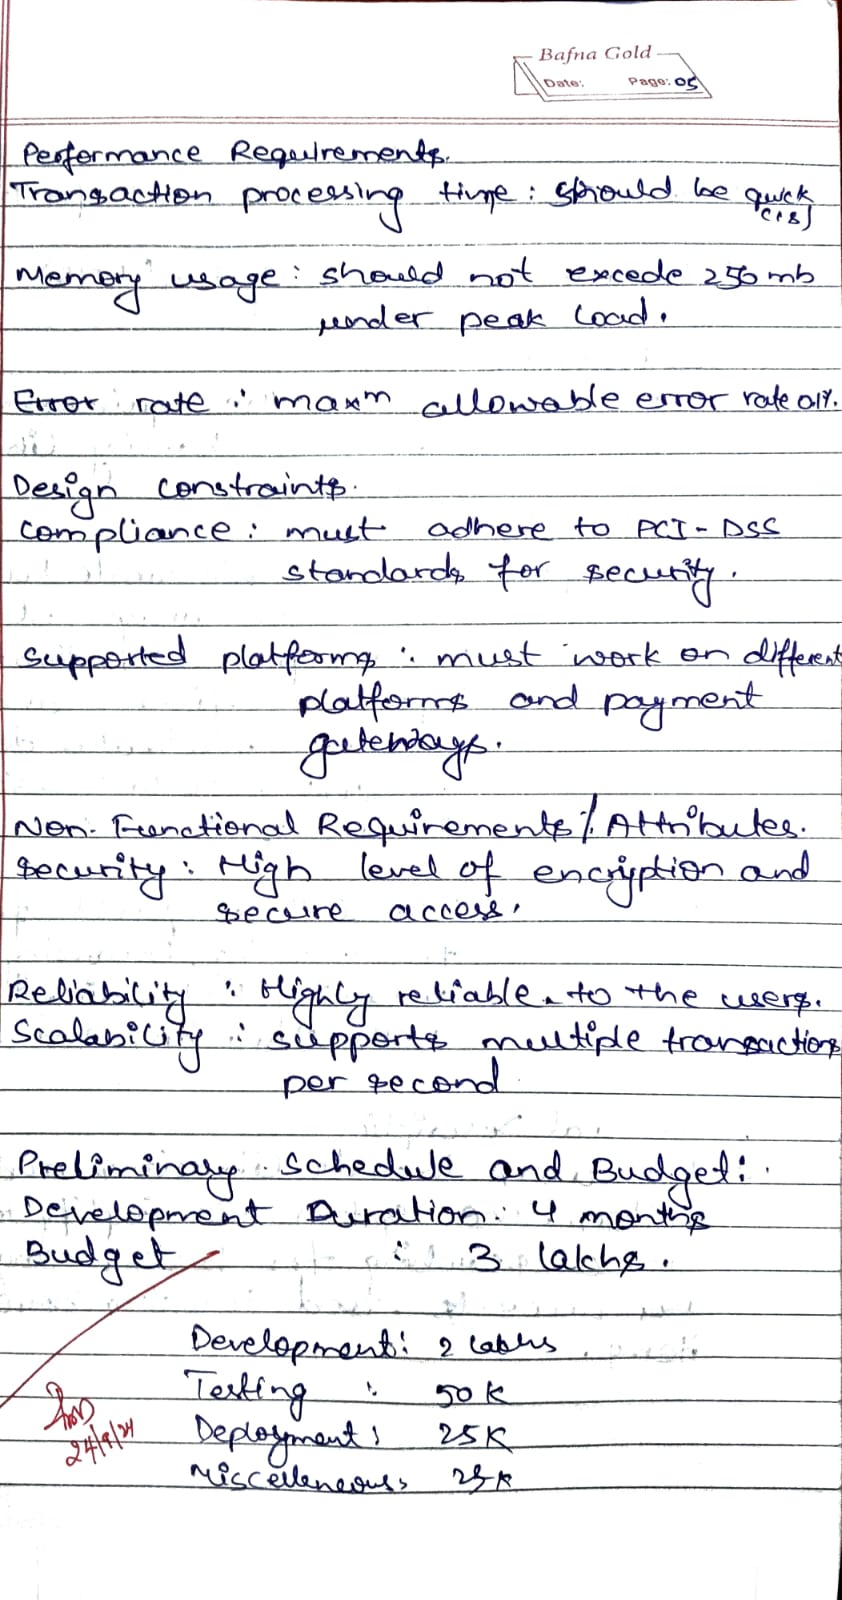 Bafna Gold
Date: Page: 05
Performance Requirements.
Transaction processing time : should be quick
Memory usage : should not excede 250 mb
under peak load.
Error rate : maxm allowable error rate 0.1%.
Design constraints.
compliance : must adhere to PCI-DSS
standards for security.
Supported platforms : must work on different
platforms and payment
gateways.
Non-Functional Requirements / Attributes.
Security : High level of encryption and
secure access.
Reliability : Highly reliable to the users.
Scalability : supports multiple transactions
per second
Preliminary schedule and Budget :
Development Duration : 4 months
Budget : 3 lakhs.
Development : 2 lakhs
Testing : 50 K
Deployment : 25 K
Miscelleneous : 25 K
24/9/24